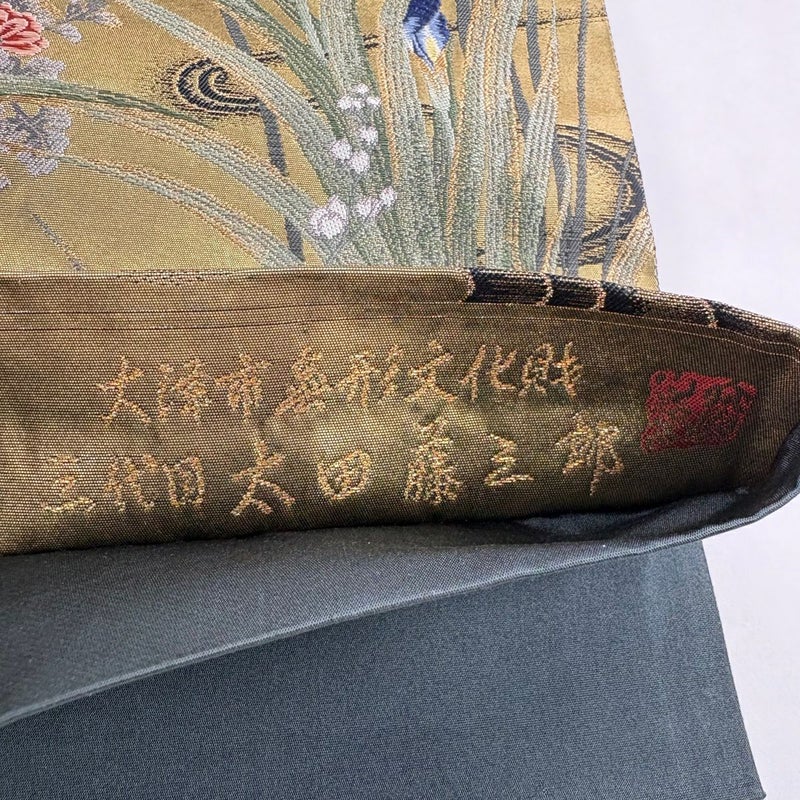 大津市無形文化財
三代目太田藤三郎